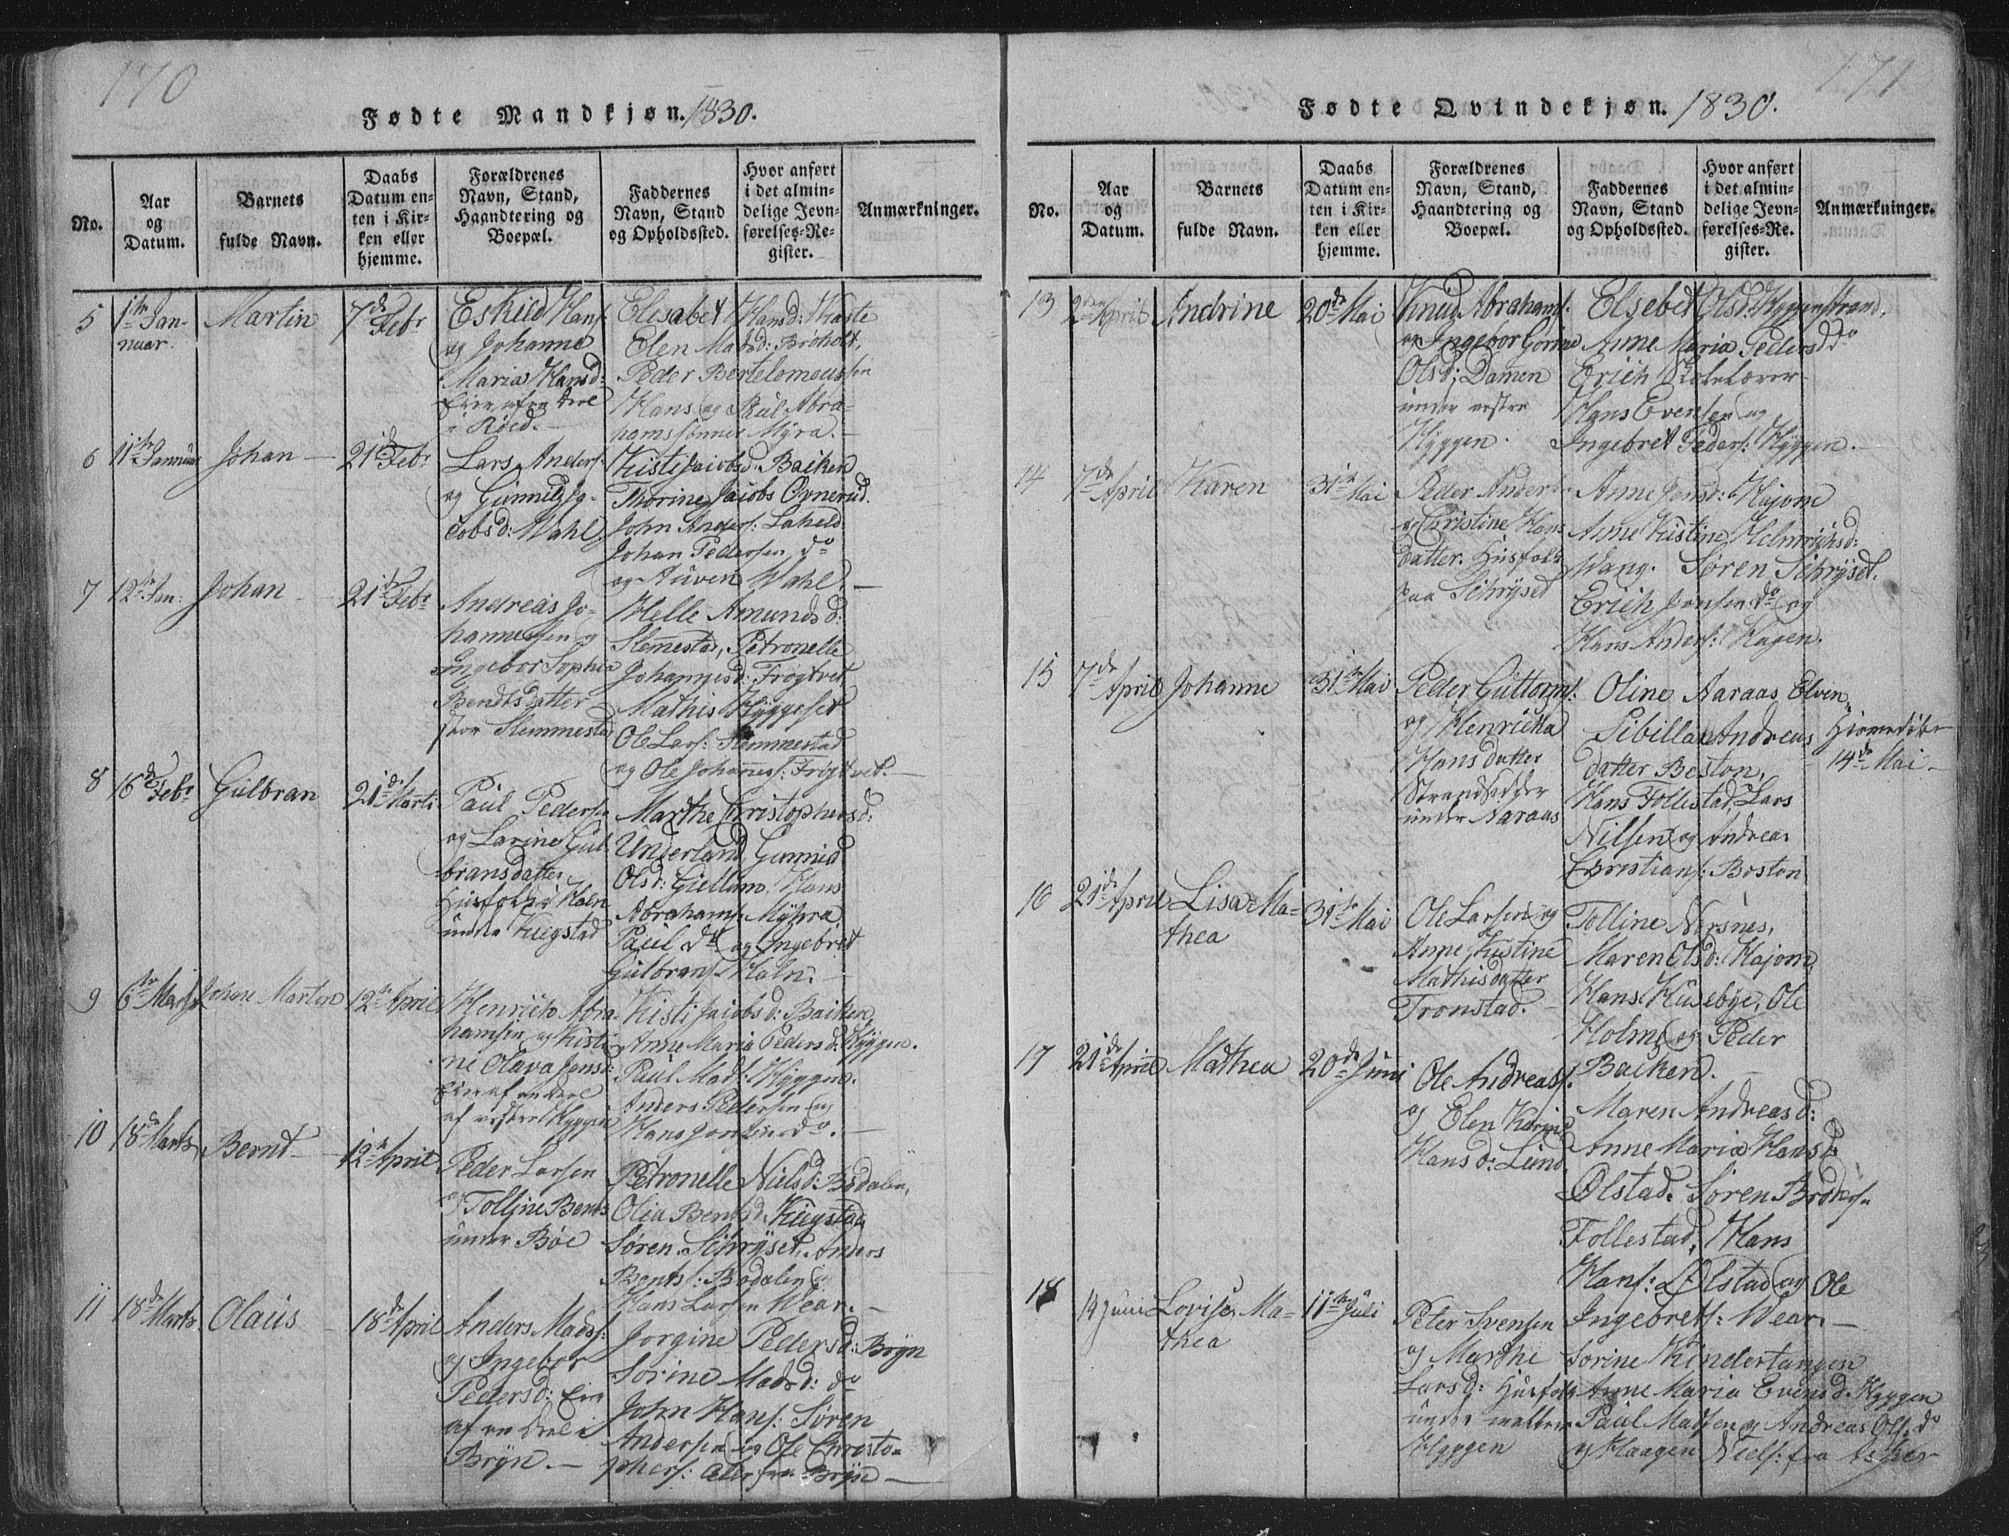 170
Fødte Mandkjøn. 1830.
No.
Aar
og
Datum.
Barnets
fulde Navn.
Daabs
Datum en-
ten i Kir-
ken eller
hjemme.
Forældrenes
Navn, Stand,
Haandtering og
Boepæl.
Faddernes
Navn, Stand
og Opholdssted.
Hvor anført
i det almin-
delige Jevn-
førelses-Re-
gister.
Anmærkninger.
5
1te Jan-
nuar.
Martin
7de Febr
Eskild Hans:
og Johanne
Maria Hansd:
Eier af en Deel
i Röed.
Elisabet Hansd:
Elen Madsd: Bröholt,
Peder Bertelomeussen
Hans og Paul Abra-
hamssönner Myra.
6
11te Januar
Johan
21de Febr
Lars Anders:
og Gunnild Ja-
cobsd: Wahl
Kisti Jacobsd: Backen
Thorine Jacobs Ovnerud.
John Anders: Laheld
Johan Pedersen do
og Auven Wahl.
7
12te Jan:
Johan
21de Febr
Andreas Jo-
hannessen og
Ingebor Sophia
Bendtsdatter
stor Slemmestad
Helle Amundsd:
Slemestad, Petronelle
Johannesd: Frögtvet
Mathis Hyggeset
Ole Lars: Slemmestad
og Ole Johannes: Frögtvet.
8
16de Febr
Gulbran
21de Marti
Paul Peders:
og Larine Gul-
bransdatter
Husfolk i Haln
under Kiegstad
Marthe Christophersd:
Underland, Gunnild
Olsd: Giellum, Hans
Abrahams: Myhra
Paul do og Ingebret
Gulbrans: Haln.
9
6te Marts
Johan Marton
12te April
Henrich Abra-
hamsen og Kisti-
ne Olava Jensd:
Eier af en Deel
af vestre Hyggen
Kisti Jacobsd: Backen,
Anne Maria Pedersd: Hyggen.
Paul Mads: Hyggen.
Anders Pedersen og
Hans Jensen do.
10
18de Marts
Bernt
12te April
Peder Larsen
og Tolline Bents
under Böe
Petronelle Nielsd: Bödalen,
Olia Bentsd: Kiegstad,
Sören Schryset, Anders
Bents: Bödalen og
Hans Larsen Wear.
11
18de Marts
Olaus
18de April
Anders Mads:
og Ingebor
Pedersd: Eier
af en Deel i
Bryn.
Jorgine Pedersd: Bryn
Sorine Madsd: do
John Hans: Sören
Andersen og Ole Christo-
phers: alle fra Bryn
171
Fødte Qvindekjøn. 1830.
No.
Aar
og
Datum.
Barnets
fulde Navn.
Daabs
Datum en-
ten i Kir-
ken eller
hjemme.
Forældrenes
Navn, Stand,
Haandtering og
Boepæl.
Faddernes
Navn, Stand
og Opholdssted.
Hvor anført
i det almin-
delige Jevn-
førelses-Re-
gister.
Anmærkninger.
13
2den April
Andrine
20de Mai
Knud Abrahams:
og Ingebor Gorine
Olsd: Damen
under vestre
Hyggen.
Elsebet Olsd: Hyggenstrand,
Anne Maria Pedersd do
Erich Skolelærer
Hans Evensen og
Ingebret Peders: Hyggen.
14
7de April
Karen
31te Mai
Peder Anders:
og Christine Hans
datter. Husfolk
paa Schryset
Anne Jensd: Hajom
Anne Kistine Helmrichsd:
Wang. Sören Schryset.
Erich Jensen do og
Hans Anders: Hagen.
15
7de April
Johanne
31te Mai
Peder Guttorm:
og Henricka
Hansdatter
Strandsidder
under Aaraas
Oline Aaraas Elven,
Sibilla Andreas
datter Boston,
Hans Follestad, Lars
Nilsen og Andreas
Christians: Boston
Hiemedöbt
14de Mai
16
21de April
Lisa Ma-
thea
31te Mai
Ole Larsen og
Anne Kistine
Mathisdatter
Tronstad.
Tolline Nersnes,
Maren Olsd: Hajom
Hans Husebye, Ole
Holm og Peder
Backen.
17
21de April
Mathea
20de Juni
Ole Andreas:
og Elen Karine
Hansd: Lund
Maren Andreasd:
Anne Maria Hansd:
Ølstad. Sören Bröders:
Follestad, Hans
Hans: Ølstad og Ole
Ingebrets: Wear.
18
14 Juni
Lovise Ma-
thea
11te Juli
Peter Svensen
og Marthe
Larsd: Husfolk
under mellem
Hyggen
Sorine Kindertangen
Anne Maria Evensd: Hyggen
Paul Madsen og Andreas Ols: do
og Haagen Niels: fra Asker